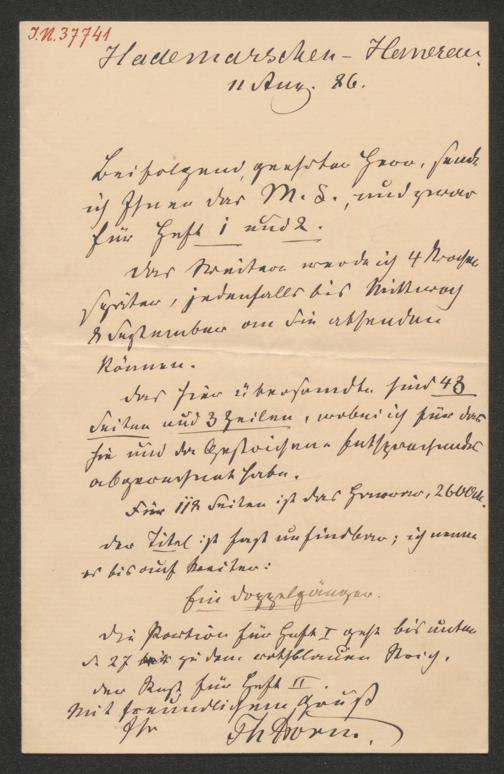 I.N. 37741
Hademarschen-Hanerau
11 Aug. 86.
Beifolgend, geehrter Herr, sende
ich Ihnen das M. S., und zwar
für Heft 1 und 2.
Das Weitere werde ich 4 Wochen
später, jedenfalls bis Mittwoch
8 September an Sie absenden
können.
Das hier übersandte sind 48
Seiten und 3 Zeilen, wobei ich für das
hie und da Gestrichene Entsprechendes
abgerechnet habe.
Für 118 Seiten ist das Honorar, 2600
der Titel ist fast unfindbar; ich nenne
es bis auf Weiter:
Ein Doppelgänger.
Die Portion für Heft I geht bis unten
S. 27 zu dem rothblauen Strich,
der Rest für Heft II.
Mit freundlichem Gruß
Ihr
ThStorm.